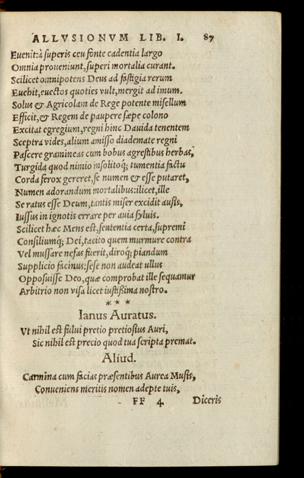 ALLVSIONVM LIB. I. 87
Euenit: à superis ceu fonte cadentia largo
Omnia proueniunt, superi mortalia curant.
Scilicet omnipotens Deus ad fastigia rerum
Euehit, euectos quoties vult, mergit ad imum.
Solus & Agricolam de Rege potente misellum
Efficit, & Regem de paupere sæpe colono
Excitat egregium, regni hinc Dauida tenentem
Sceptra vides, alium amisso diademate regni
Pascere gramineas cum bobus agrestibus herbas,
Turgida quòd nimio insolitoq; tumentia fastu
Corda ferox gereret, se numen & esse putaret,
Numen adorandum mortalibus: ilicet, ille
Se ratus esse Deum, tantis miser excidit ausis,
Iussus in ignotis errare per auia syluis.
Scilicet hæc Mens est, sententia certa, supremi
Consiliumq; Dei, tacito quem murmure contra
Vel mussare nefas fuerit, diroq; piandum
Supplicio facinus: sese non audeat ullus
Opposuisse Deo, quæ comprobat ille sequamur
Arbitrio non visa licet iustissima nostro.
* * *
Ianus Auratus.
Vt nihil est fului pretio pretiosius Auri,
Sic nihil est precio quod tua scripta premat.
Aliud.
Carmina cum facias præsentibus Aurea Musis,
Conueniens meritis nomen adepte tuis,
FF 4 Diceris